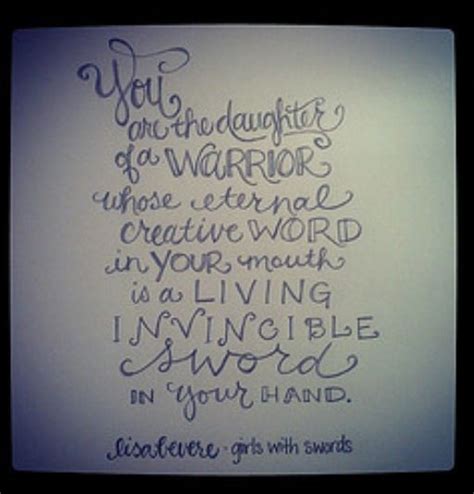 You
are the daughter
of a WARRIOR
whose eternal
creative WORD
in YOUR mouth
is a LIVING
INVINCIBLE
sword
IN your HAND.
lisa bevere - girls with swords